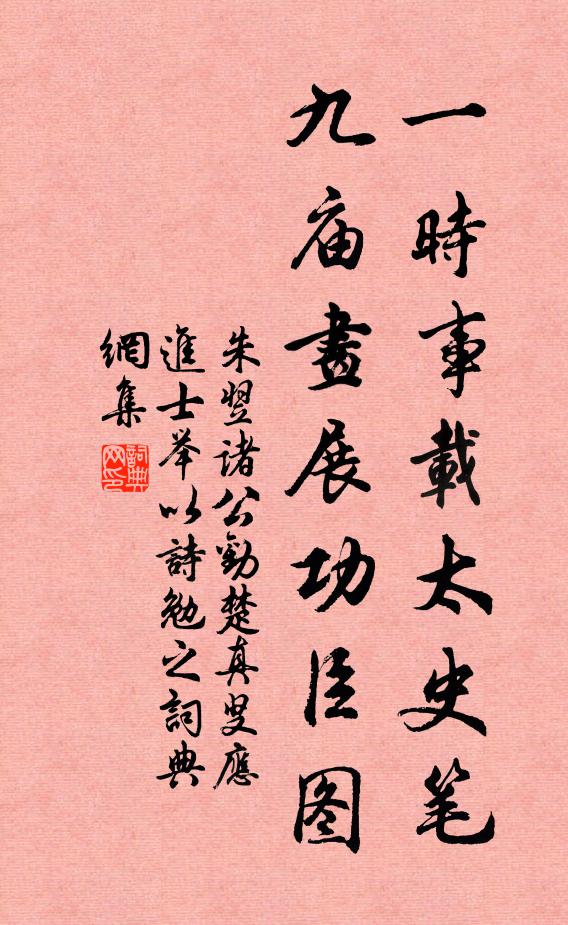 一時事載太史笔
九庙畫展功臣图
朱翌諸公勸楚真叟應
進士举以詩勉之詞典
網集
詞典
网印